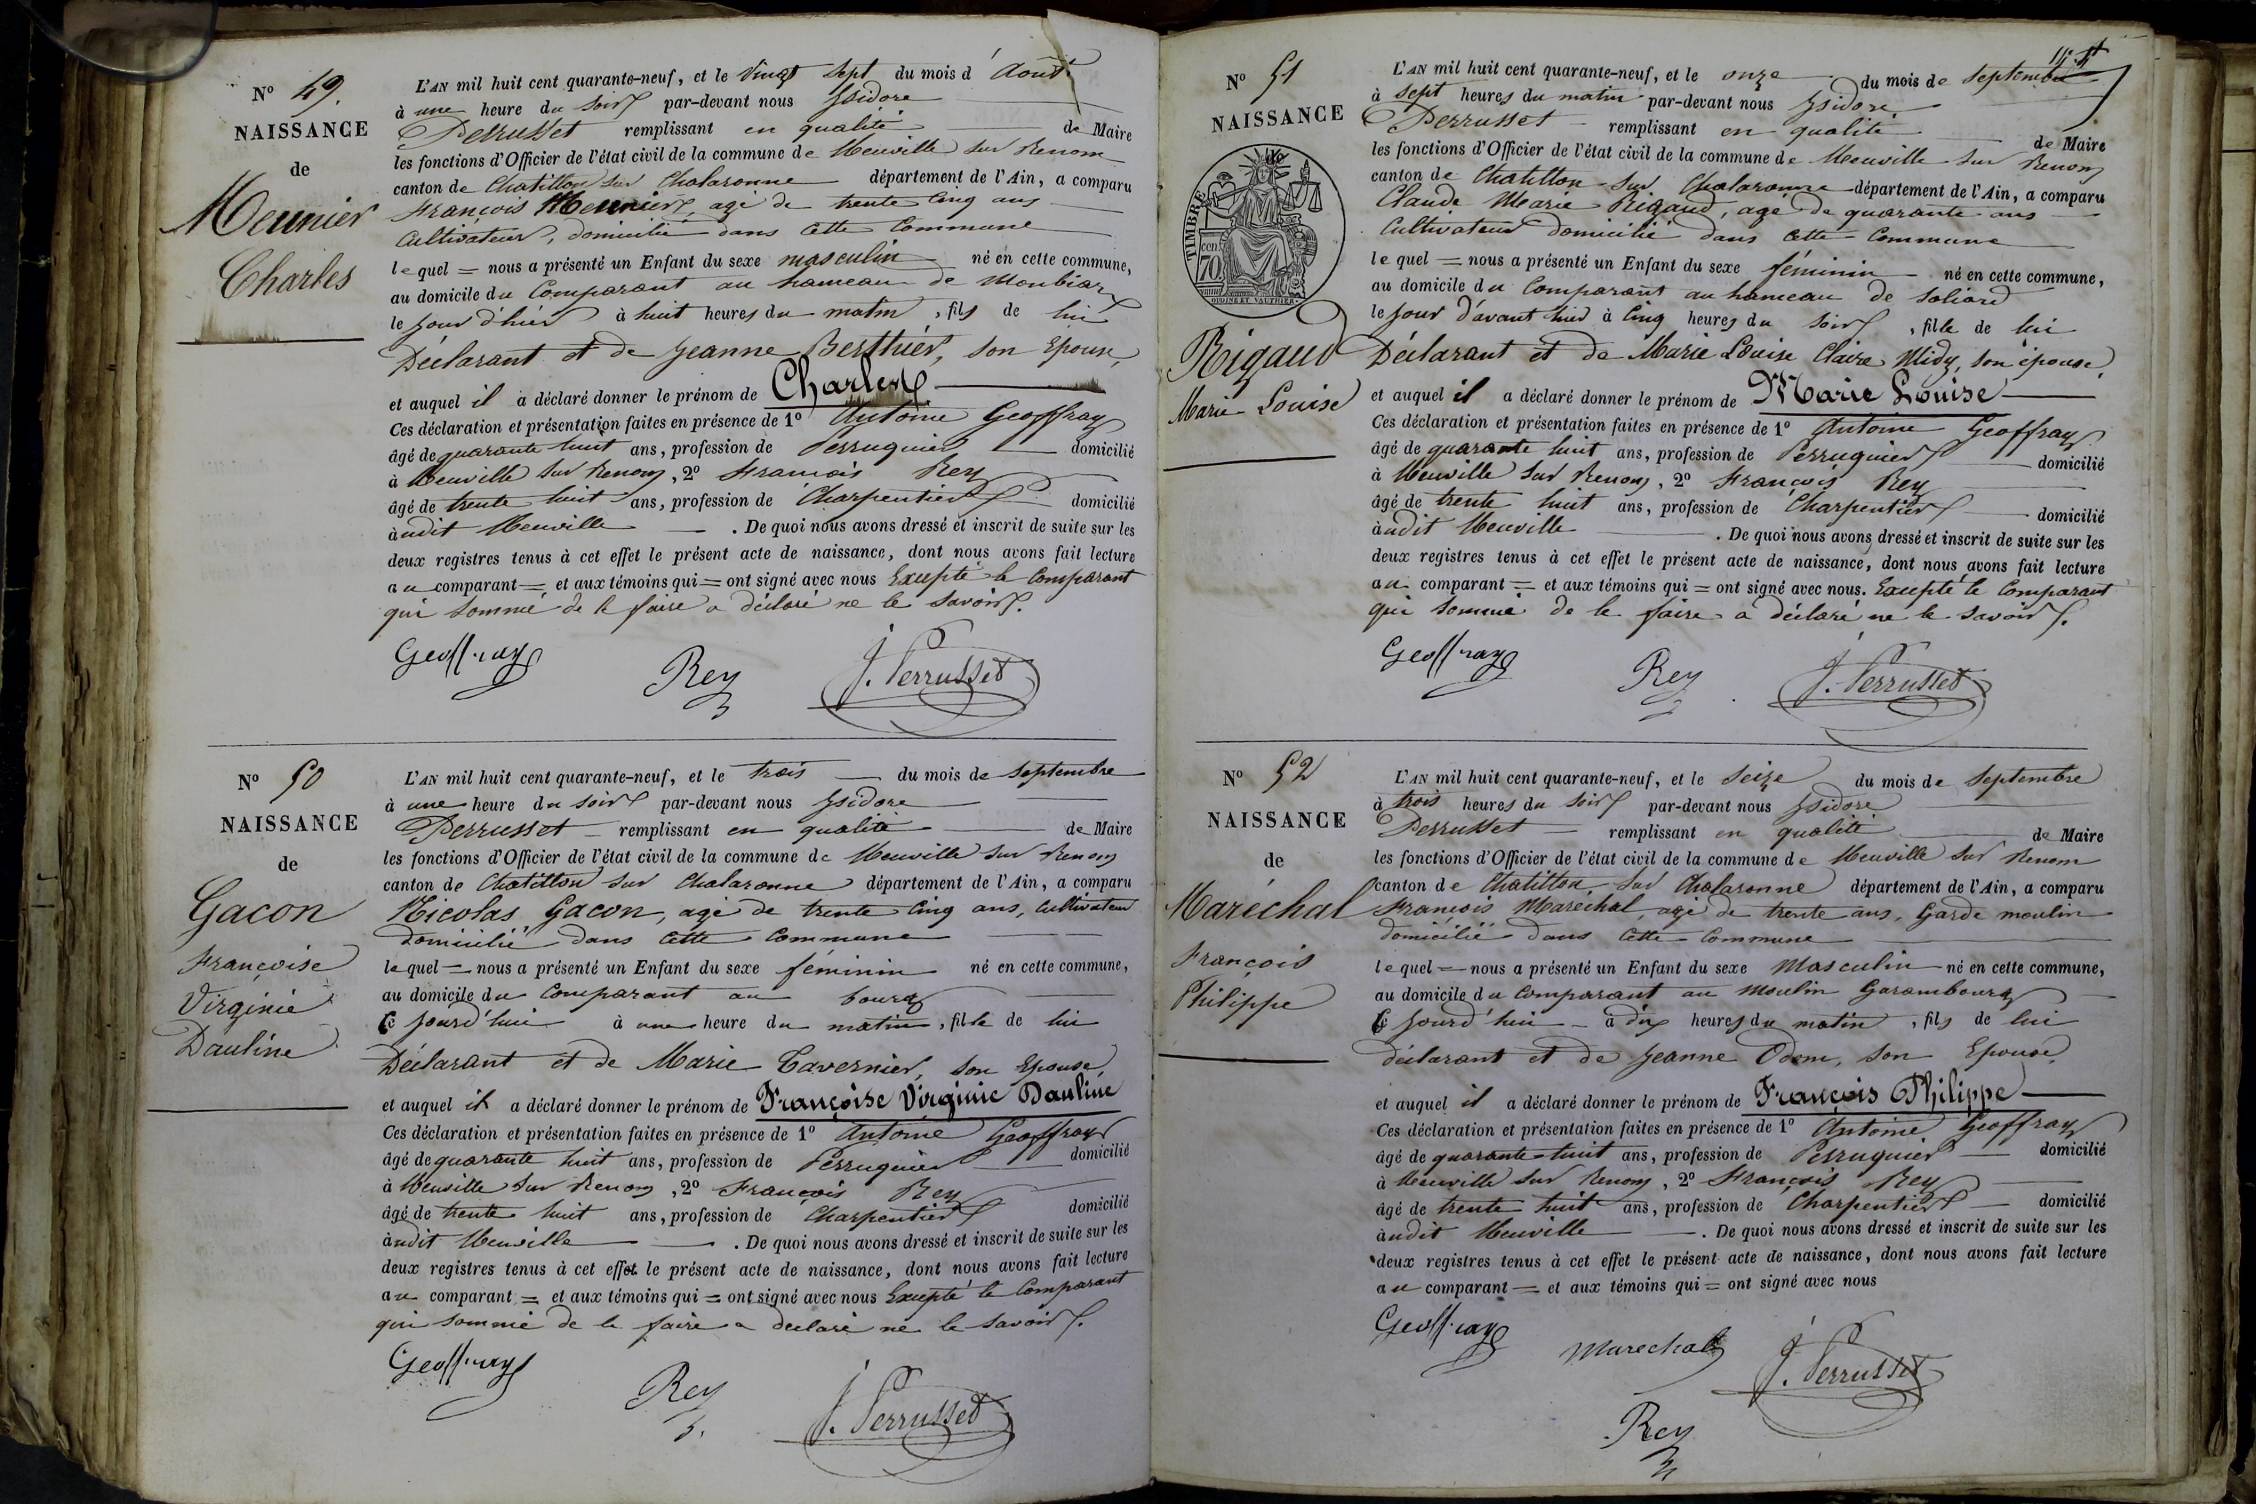 N° 49.
NAISSANCE
de
Meunier
Charles
L'AN mil huit cent quarante-neuf, et le vingt sept du mois d'Août
à une heure du soir par-devant nous Isidore
Perrusset remplissant en qualité de Maire
les fonctions d'Officier de l'état civil de la commune de Neuville sur Renom
canton de Chatillon sur Chalaronne département de l'Ain, a comparu
François Meunier, agé de trente Cinq ans
Cultivateur, domicilié dans cette Commune
lequel = nous a présenté un Enfant du sexe masculin né en cette commune,
au domicile du Comparant au hameau de Monbiar
le jour d'hier à huit heures du matin, fils de lui
Déclarant et de Jeanne Berthier, son Epouse,
et auquel il a déclaré donner le prénom de Charles
Ces déclaration et présentation faites en présence de 1° Antoine Geoffray
âgé de quarante huit ans, profession de Perruquier domicilié
à Neuville sur Renom, 2° François Rey
âgé de trente huit ans, profession de Charpentier domicilié
àudit Neuville. De quoi nous avons dressé et inscrit de suite sur les
deux registres tenus à cet effet le présent acte de naissance, dont nous avons fait lecture
au comparant = et aux témoins qui = ont signé avec nous Excepté le Comparant
qui sommé de le faire a déclaré ne le savoir.
Geoffray Rey J. Perrusset
N° 50
NAISSANCE
de
Gacon
Françoise
Virginie
Pauline
L'AN mil huit cent quarante-neuf, et le trois du mois de Septembre
à une heure du soir par-devant nous Isidore
Perrusset remplissant en qualité de Maire
les fonctions d'Officier de l'état civil de la commune de Neuville sur Renom
canton de Chatillon sur Chalaronne département de l'Ain, a comparu
Nicolas Gacon, agé de trente Cinq ans, Cultivateur
domicilié dans cette Commune
lequel = nous a présenté un Enfant du sexe féminin né en cette commune,
au domicile du Comparant au bourg
Ce jourd'hui à une heure du matin, fille de lui
Déclarant et de Marie Tavernier, son Epouse,
et auquel il a déclaré donner le prénom de Françoise Virginie Pauline
Ces déclaration et présentation faites en présence de 1° Antoine Geoffray
âgé de quarante huit ans, profession de Perruquier domicilié
à Neuville sur Renom, 2° François Rey
âgé de trente huit ans, profession de Charpentier domicilié
àudit Neuville. De quoi nous avons dressé et inscrit de suite sur les
deux registres tenus à cet effet le présent acte de naissance, dont nous avons fait lecture
au comparant = et aux témoins qui = ont signé avec nous Excepté le Comparant
qui sommé de le faire a déclaré ne le savoir.
Geoffray Rey J. Perrusset
N° 51
NAISSANCE
de
TIMBRE
70 cen.
Rigaud
Marie Louise
L'AN mil huit cent quarante-neuf, et le onze du mois de Septembre
à sept heures du matin par-devant nous Isidore
Perrusset remplissant en qualité de Maire
les fonctions d'Officier de l'état civil de la commune de Neuville sur Renom
canton de Chatillon sur Chalaronne département de l'Ain, a comparu
Claude Marie Rigaud, agé de quarante ans
Cultivateur domicilié dans cette Commune
lequel = nous a présenté un Enfant du sexe féminin né en cette commune,
au domicile du Comparant au hameau de Soliard
le jour d'avant hier à Cinq heures du soir, fille de lui
Déclarant et de Marie Louise Claire Midy, son épouse,
et auquel il a déclaré donner le prénom de Marie Louise
Ces déclaration et présentation faites en présence de 1° Antoine Geoffray
âgé de quarante huit ans, profession de Perruquier domicilié
à Neuville sur Renom, 2° François Rey
âgé de trente huit ans, profession de Charpentier domicilié
àudit Neuville. De quoi nous avons dressé et inscrit de suite sur les
deux registres tenus à cet effet le présent acte de naissance, dont nous avons fait lecture
au comparant = et aux témoins qui = ont signé avec nous. Excepté le Comparant
qui sommé de le faire a déclaré ne le savoir.
Geoffray Rey J. Perrusset
N° 52
NAISSANCE
de
Maréchal
François
Philippe
L'AN mil huit cent quarante-neuf, et le seize du mois de Septembre
à trois heures du soir par-devant nous Isidore
Perrusset remplissant en qualité de Maire
les fonctions d'Officier de l'état civil de la commune de Neuville sur Renom
canton de Chatillon sur Chalaronne département de l'Ain, a comparu
François Maréchal, agé de trente ans, Garde moulin
domicilié dans cette Commune
lequel = nous a présenté un Enfant du sexe Masculin né en cette commune,
au domicile du Comparant au Moulin Garambourg
Ce jourd'hui à dix heures du matin, fils de lui
déclarant et de Jeanne Odom, son Epouse,
et auquel il a déclaré donner le prénom de François Philippe
Ces déclaration et présentation faites en présence de 1° Antoine Geoffray
âgé de quarante-huit ans, profession de Perruquier domicilié
à Neuville sur Renom, 2° François Rey
âgé de trente huit ans, profession de Charpentier domicilié
àudit Neuville. De quoi nous avons dressé et inscrit de suite sur les
deux registres tenus à cet effet le présent acte de naissance, dont nous avons fait lecture
au comparant = et aux témoins qui = ont signé avec nous
Geoffray Marechal J. Perrusset
Rey